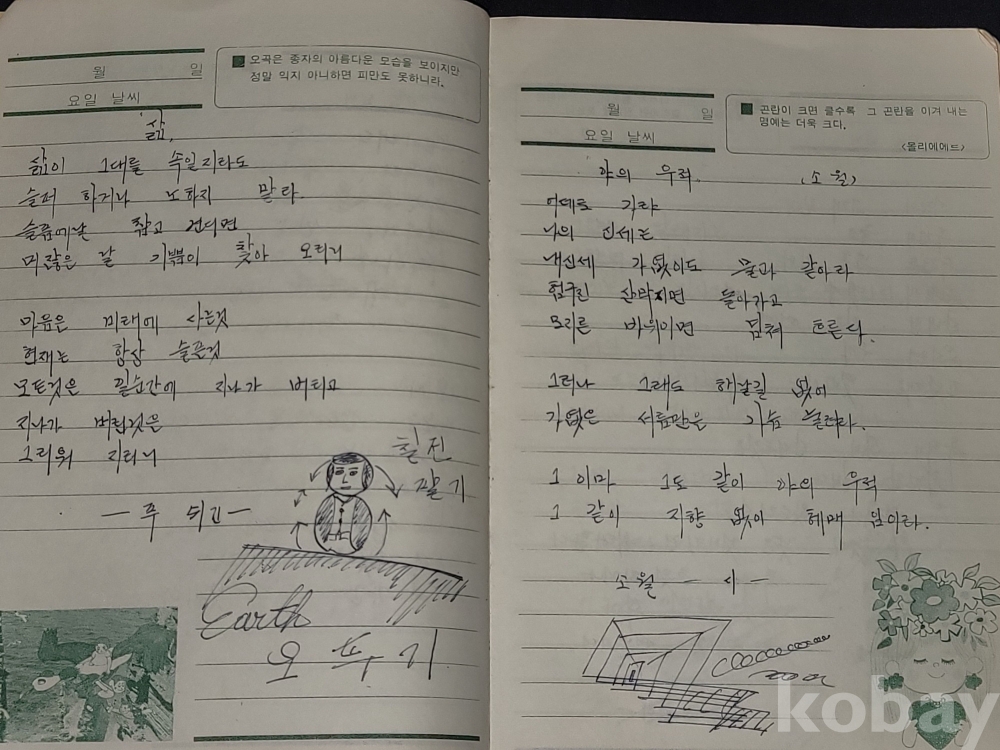 월 일
요일 날씨
오곡은 종자의 아름다운 모습을 보이지만
정말 익지 아니하면 피만도 못하니라.
삶,
삶이 그대를 속일지라도
슬퍼 하거나 노하지 말라
슬픔에날 참고 견디면
머잖은 날 기쁨이 찾아 오리니
마음은 미래에 사는것
현재는 항상 슬픈것
모든것은 일순간에 지나가 버리고
지나가 버린것은
그리워 지리니
— 푸 쉬긴 —
칠전
팔기
Earth
오 뚜 기
월 일
요일 날씨
곤란이 크면 클수록 그 곤란을 이겨 내는
명예는 더욱 크다.
<몰리에에드>
야의 우적 (소월)
어데로 가랴
나의 신세는
내신세 가엾이도 물과 같아라
험구진 산막지면 돌아가고
모리른 바위이면 넘쳐 흐른다.
그러나 그래도 해날길 없어
가엾은 서름만은 가슴 눌러라.
그 이마 그도 같이 야의 우적
그 같이 지향 없이 헤매 임이라.
소월 — 시 —
kobay